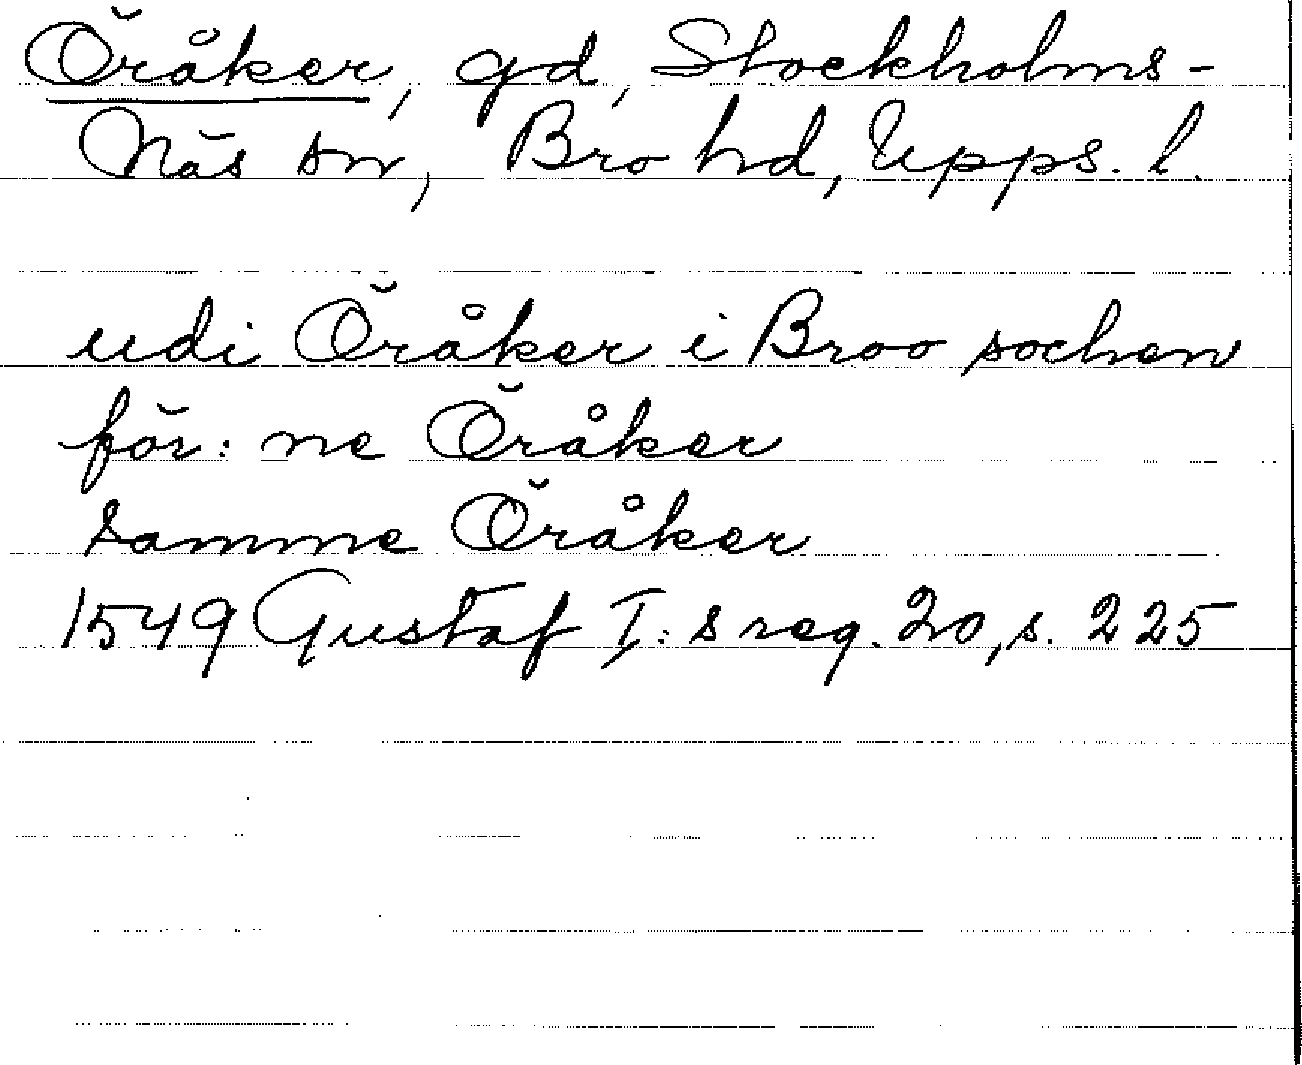 Öråker, gd, Stockholms-
Näs sn, Bro hd, Upps. l.
udi Öråker i Broo sochen
för: ne Öråker
samme Öråker
1549 Gustaf I: s reg. 20, s. 225